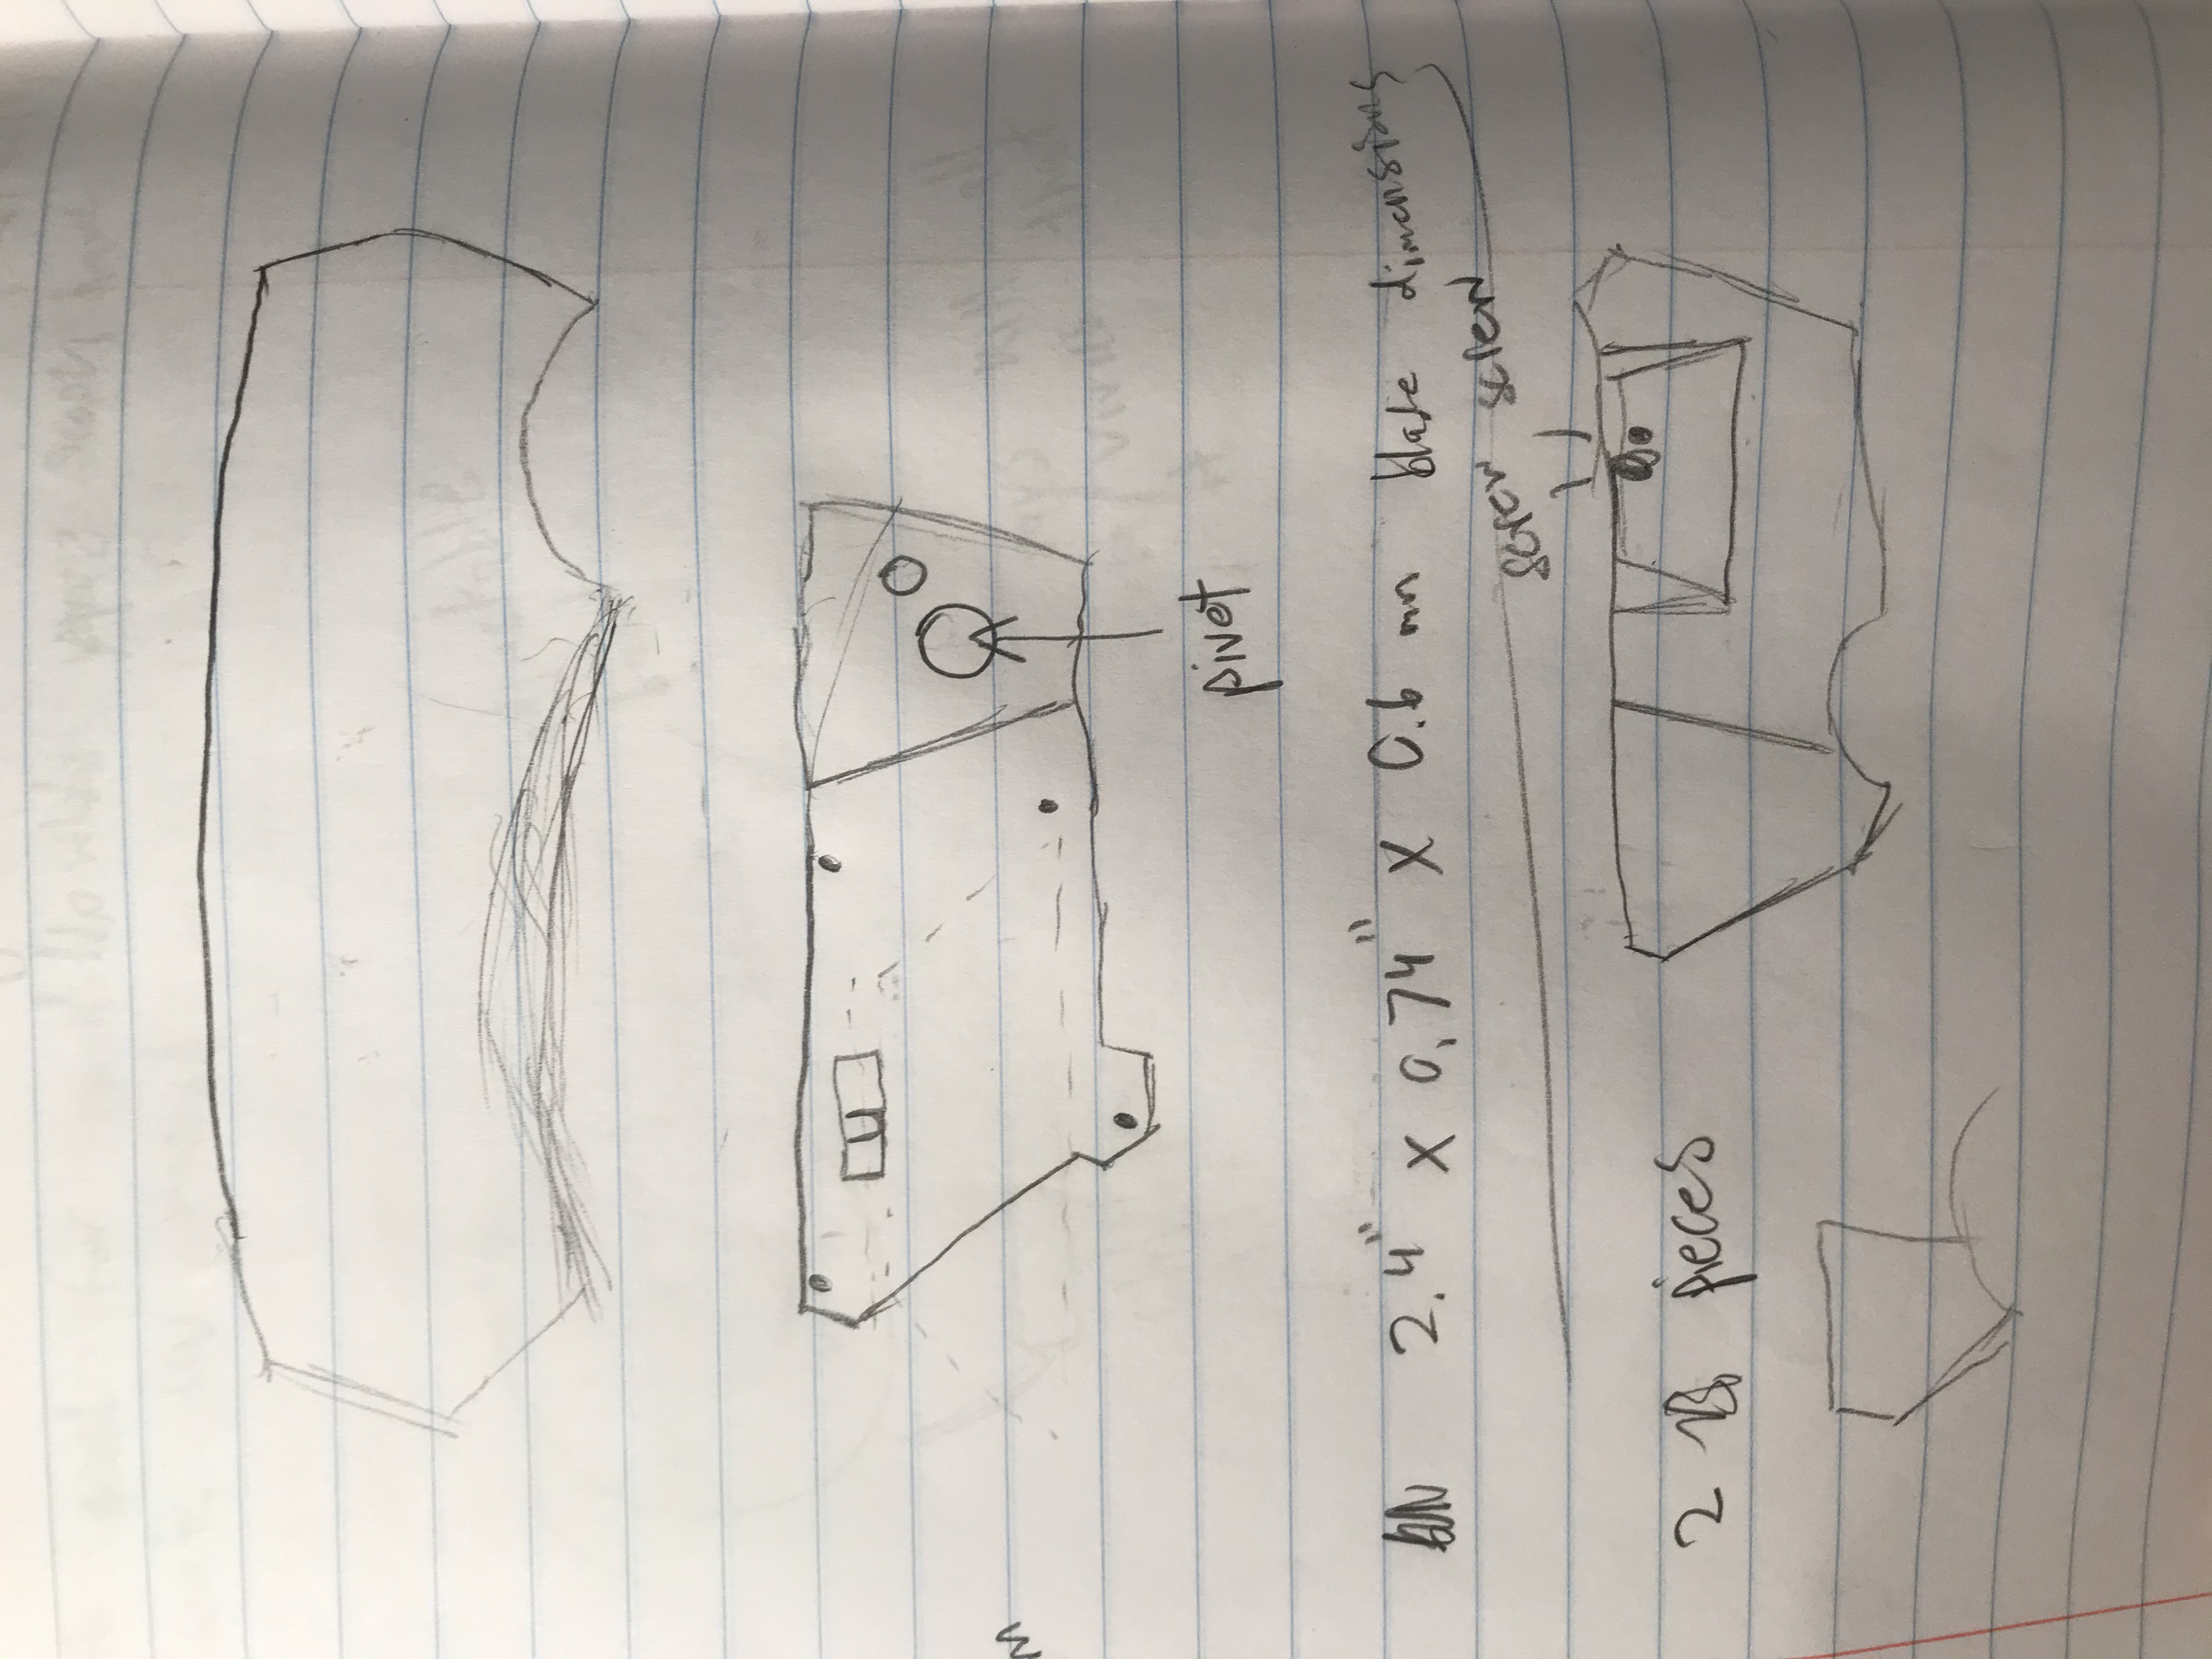 U
pivot
2.4" x 0.74" x 0.6 mm blade dimensions
screw screw
2 pieces